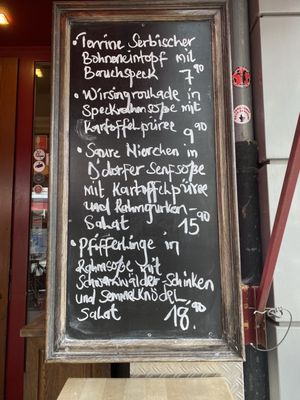 • Terrine Serbischer
Bohneneintopf mit
Bauchspeck 7,90
• Wirsingroulade in
Speckrahmsoße mit
Kartoffelpüree 9,90
• Saure Nierchen in
Ddorfer Senfsoße
mit Kartoffelpüree
und Rahmgurken-
Salat 15,90
• Pfifferlinge in
Rahmsoße mit
Schwarzwälder-Schinken
und Semmelknödel,
Salat 18,90